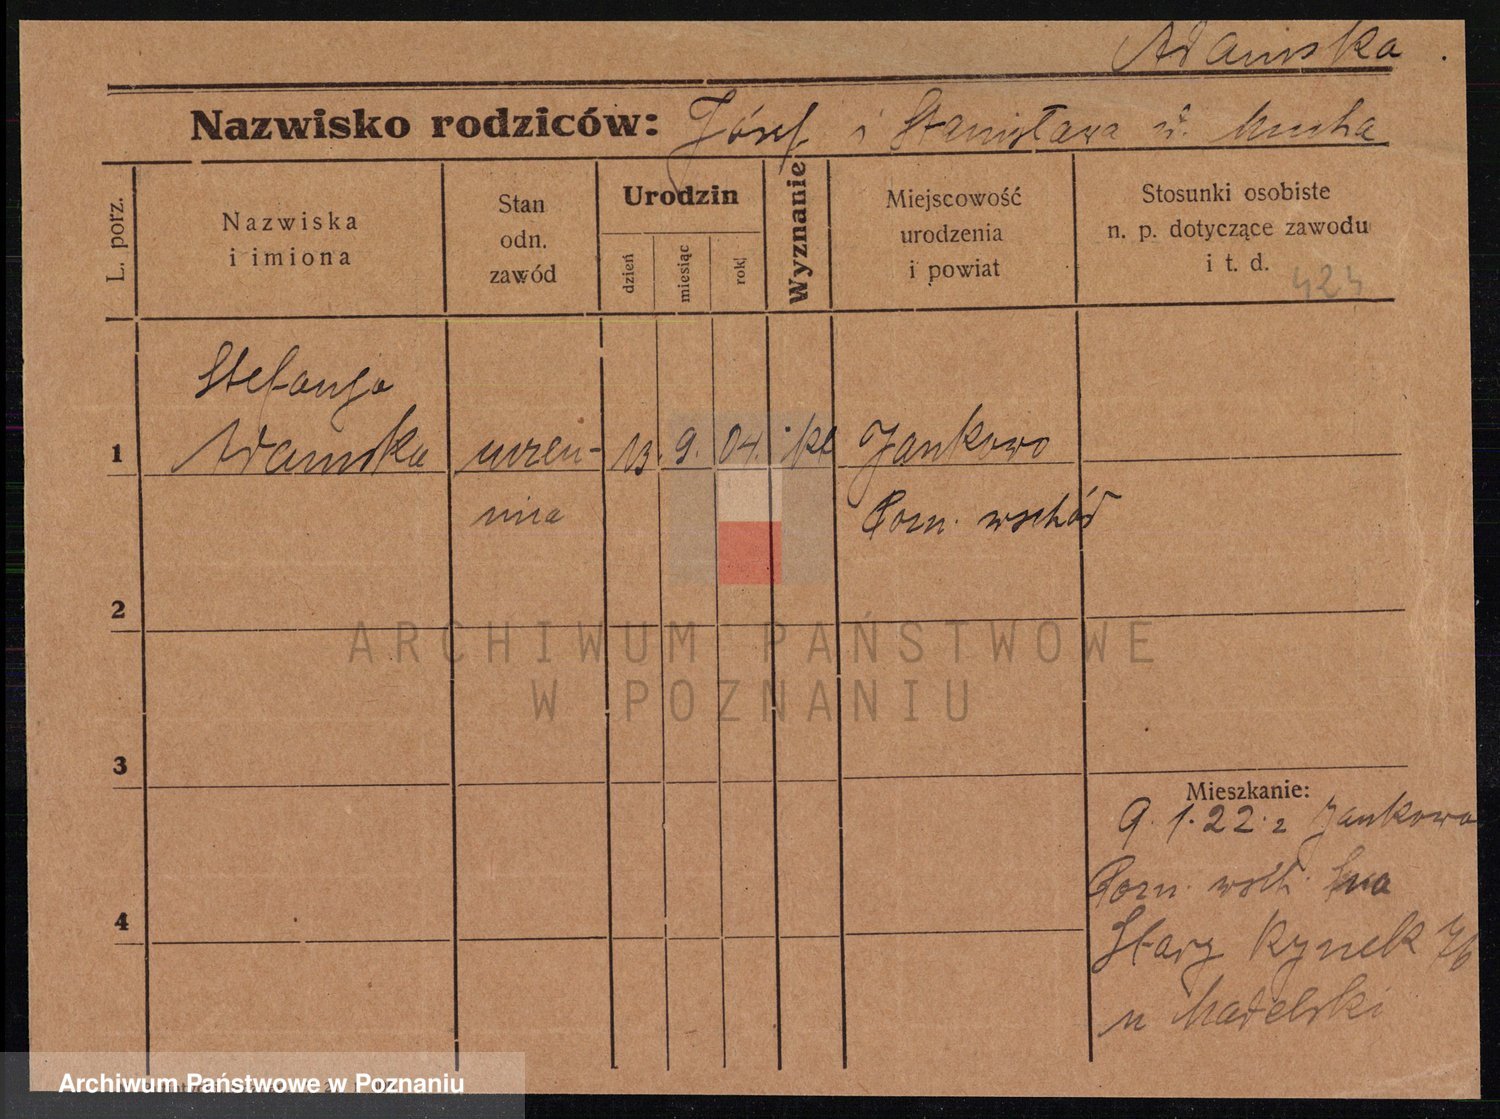 Adamska
Nazwisko rodziców: Józef i Stanisława u. Mucha
L. porz.
Nazwiska
i imiona
Stan
odn.
zawód
Urodzin
dzień
miesiąc
rok
Wyznanie
Miejscowość
urodzenia
i powiat
Stosunki osobiste
n. p. dotyczące zawodu
i t. d.
424
Stefanja
1 Adamska uczen- 13. 9. 04. kt Jankowo
nica Pozn. wschód
2
ARCHIWUM PAŃSTWOWE
W POZNANIU
3
Mieszkanie:
9. 1. 22. z Jankowa
Pozn. wsch. na
4
Stary Rynek 76
u Madelski
Archiwum Państwowe w Poznaniu